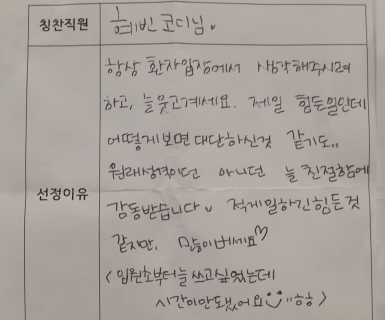 칭찬직원
혜빈 코디님.
선정이유
항상 환자입장에서 생각해주시려
하고, 늘웃고계세요. 제일 힘든일인데
어떻게보면 대단하신것 같기도..
원래성격이던 아니던 늘 친절함에
감동받습니다 적게일하긴힘든것
같지만, 많이버세요♡
<입원초부터늘 쓰고싶었는데
시간이안됐어요 ㅎㅎ>